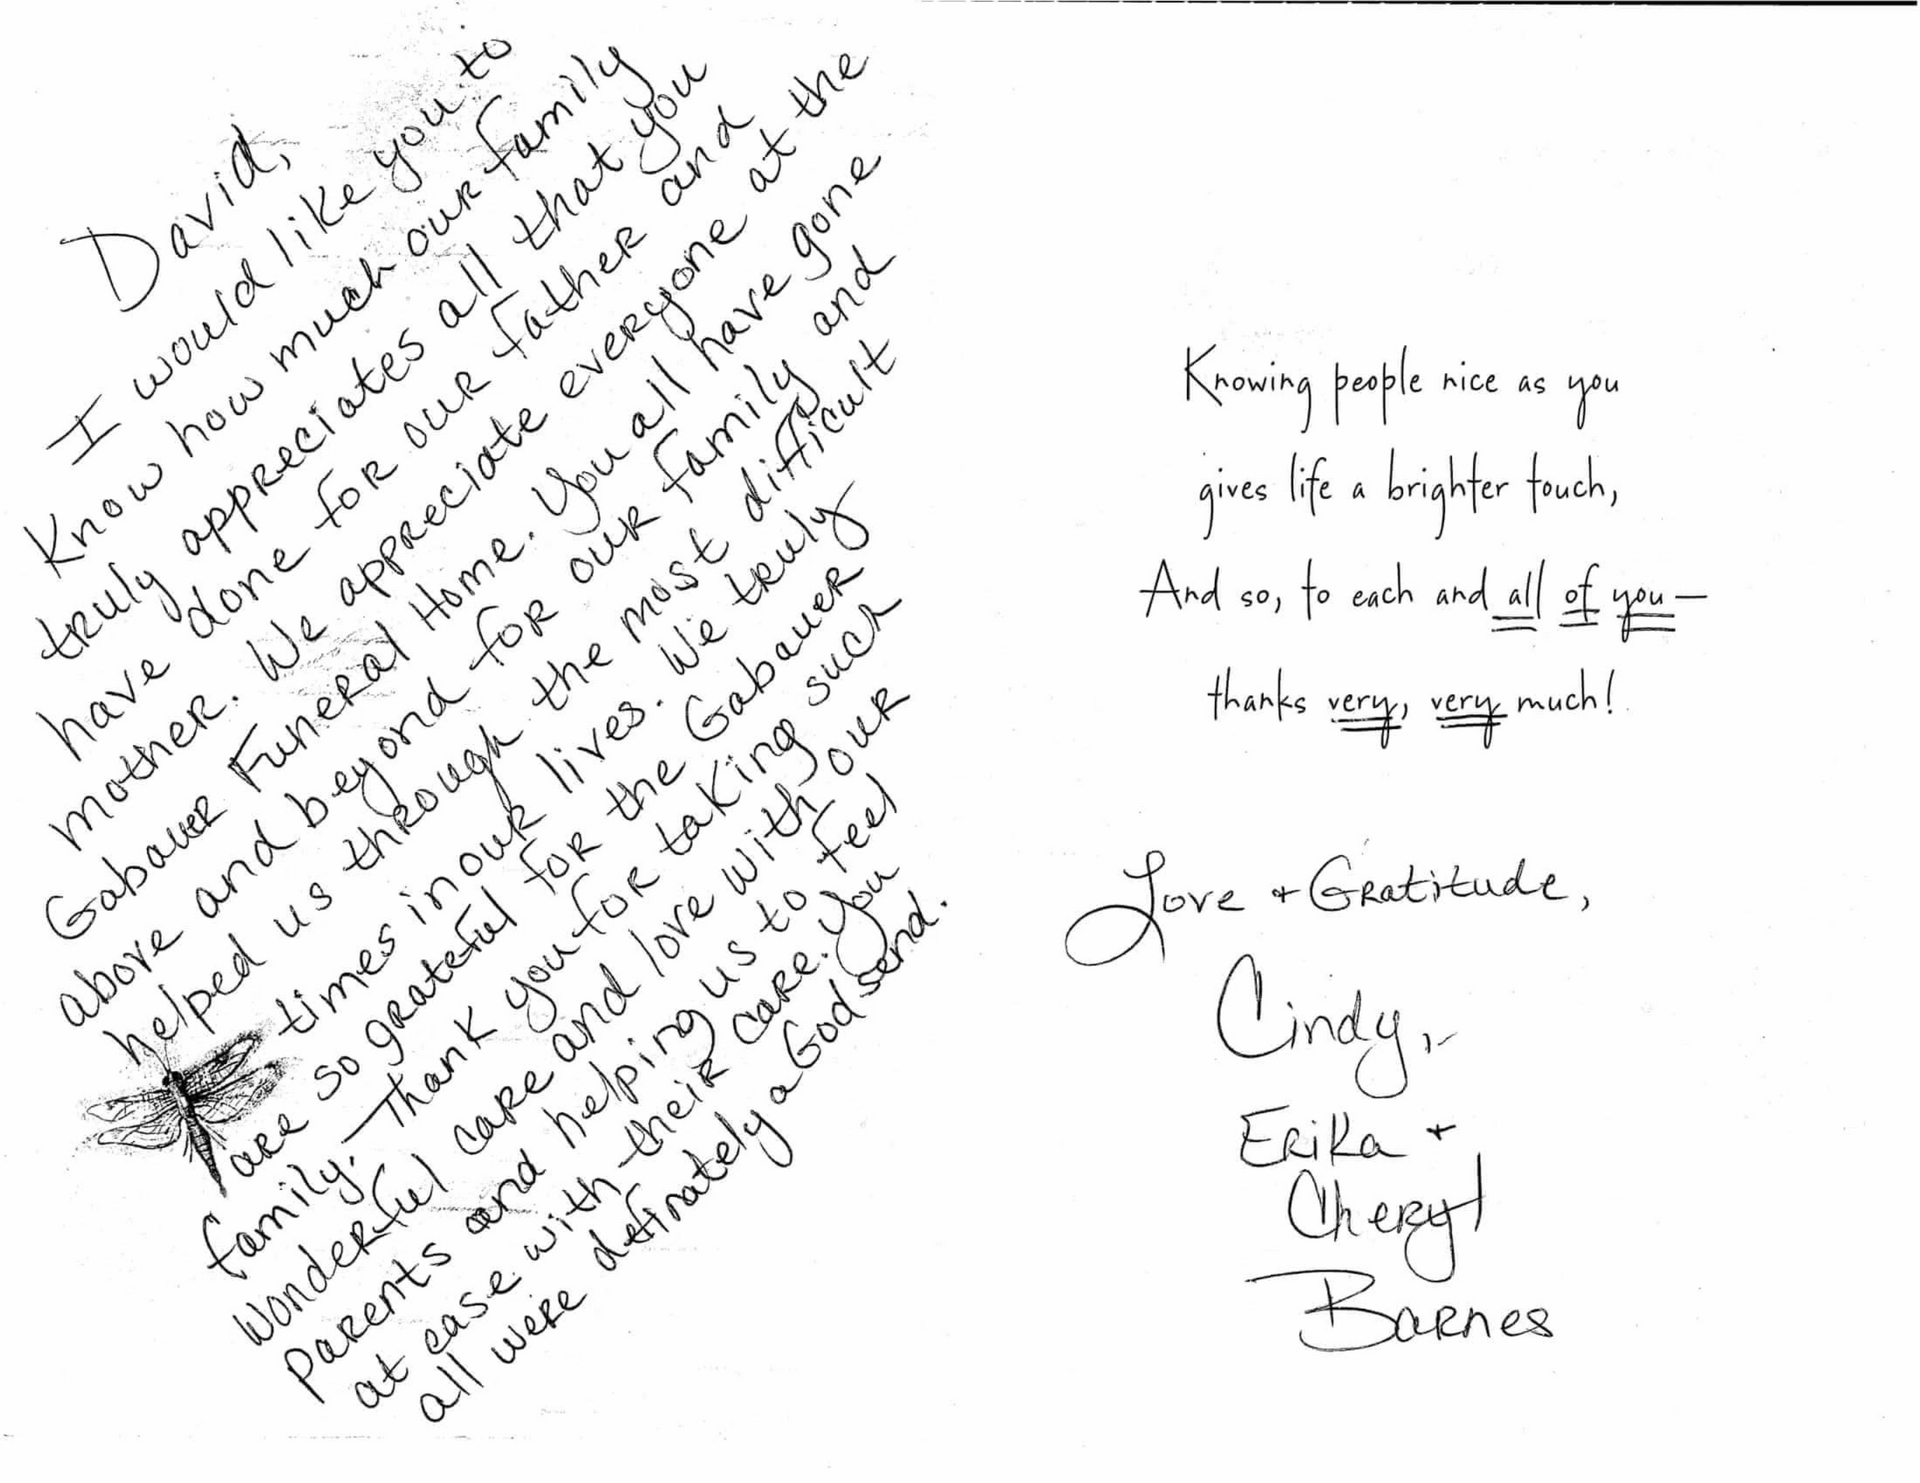 David,
I would like you to
Know how much our family
truly appreciates all that you
have done for our father and
mother. We appreciate everyone at the
Gabauer Funeral Home. You all have gone
above and beyond for our family and
helped us through the most difficult
times in our lives. We truly
are so grateful for the Gabauer
family. Thank you for taking such
wonderful care and love with our
parents and helping us to feel
at ease with their care. You
all were definately a God send.
Knowing people nice as you
gives life a brighter touch,
And so, to each and all of you—
thanks very, very much!
Love + Gratitude,
Cindy,
Erika +
Cheryl
Barnes